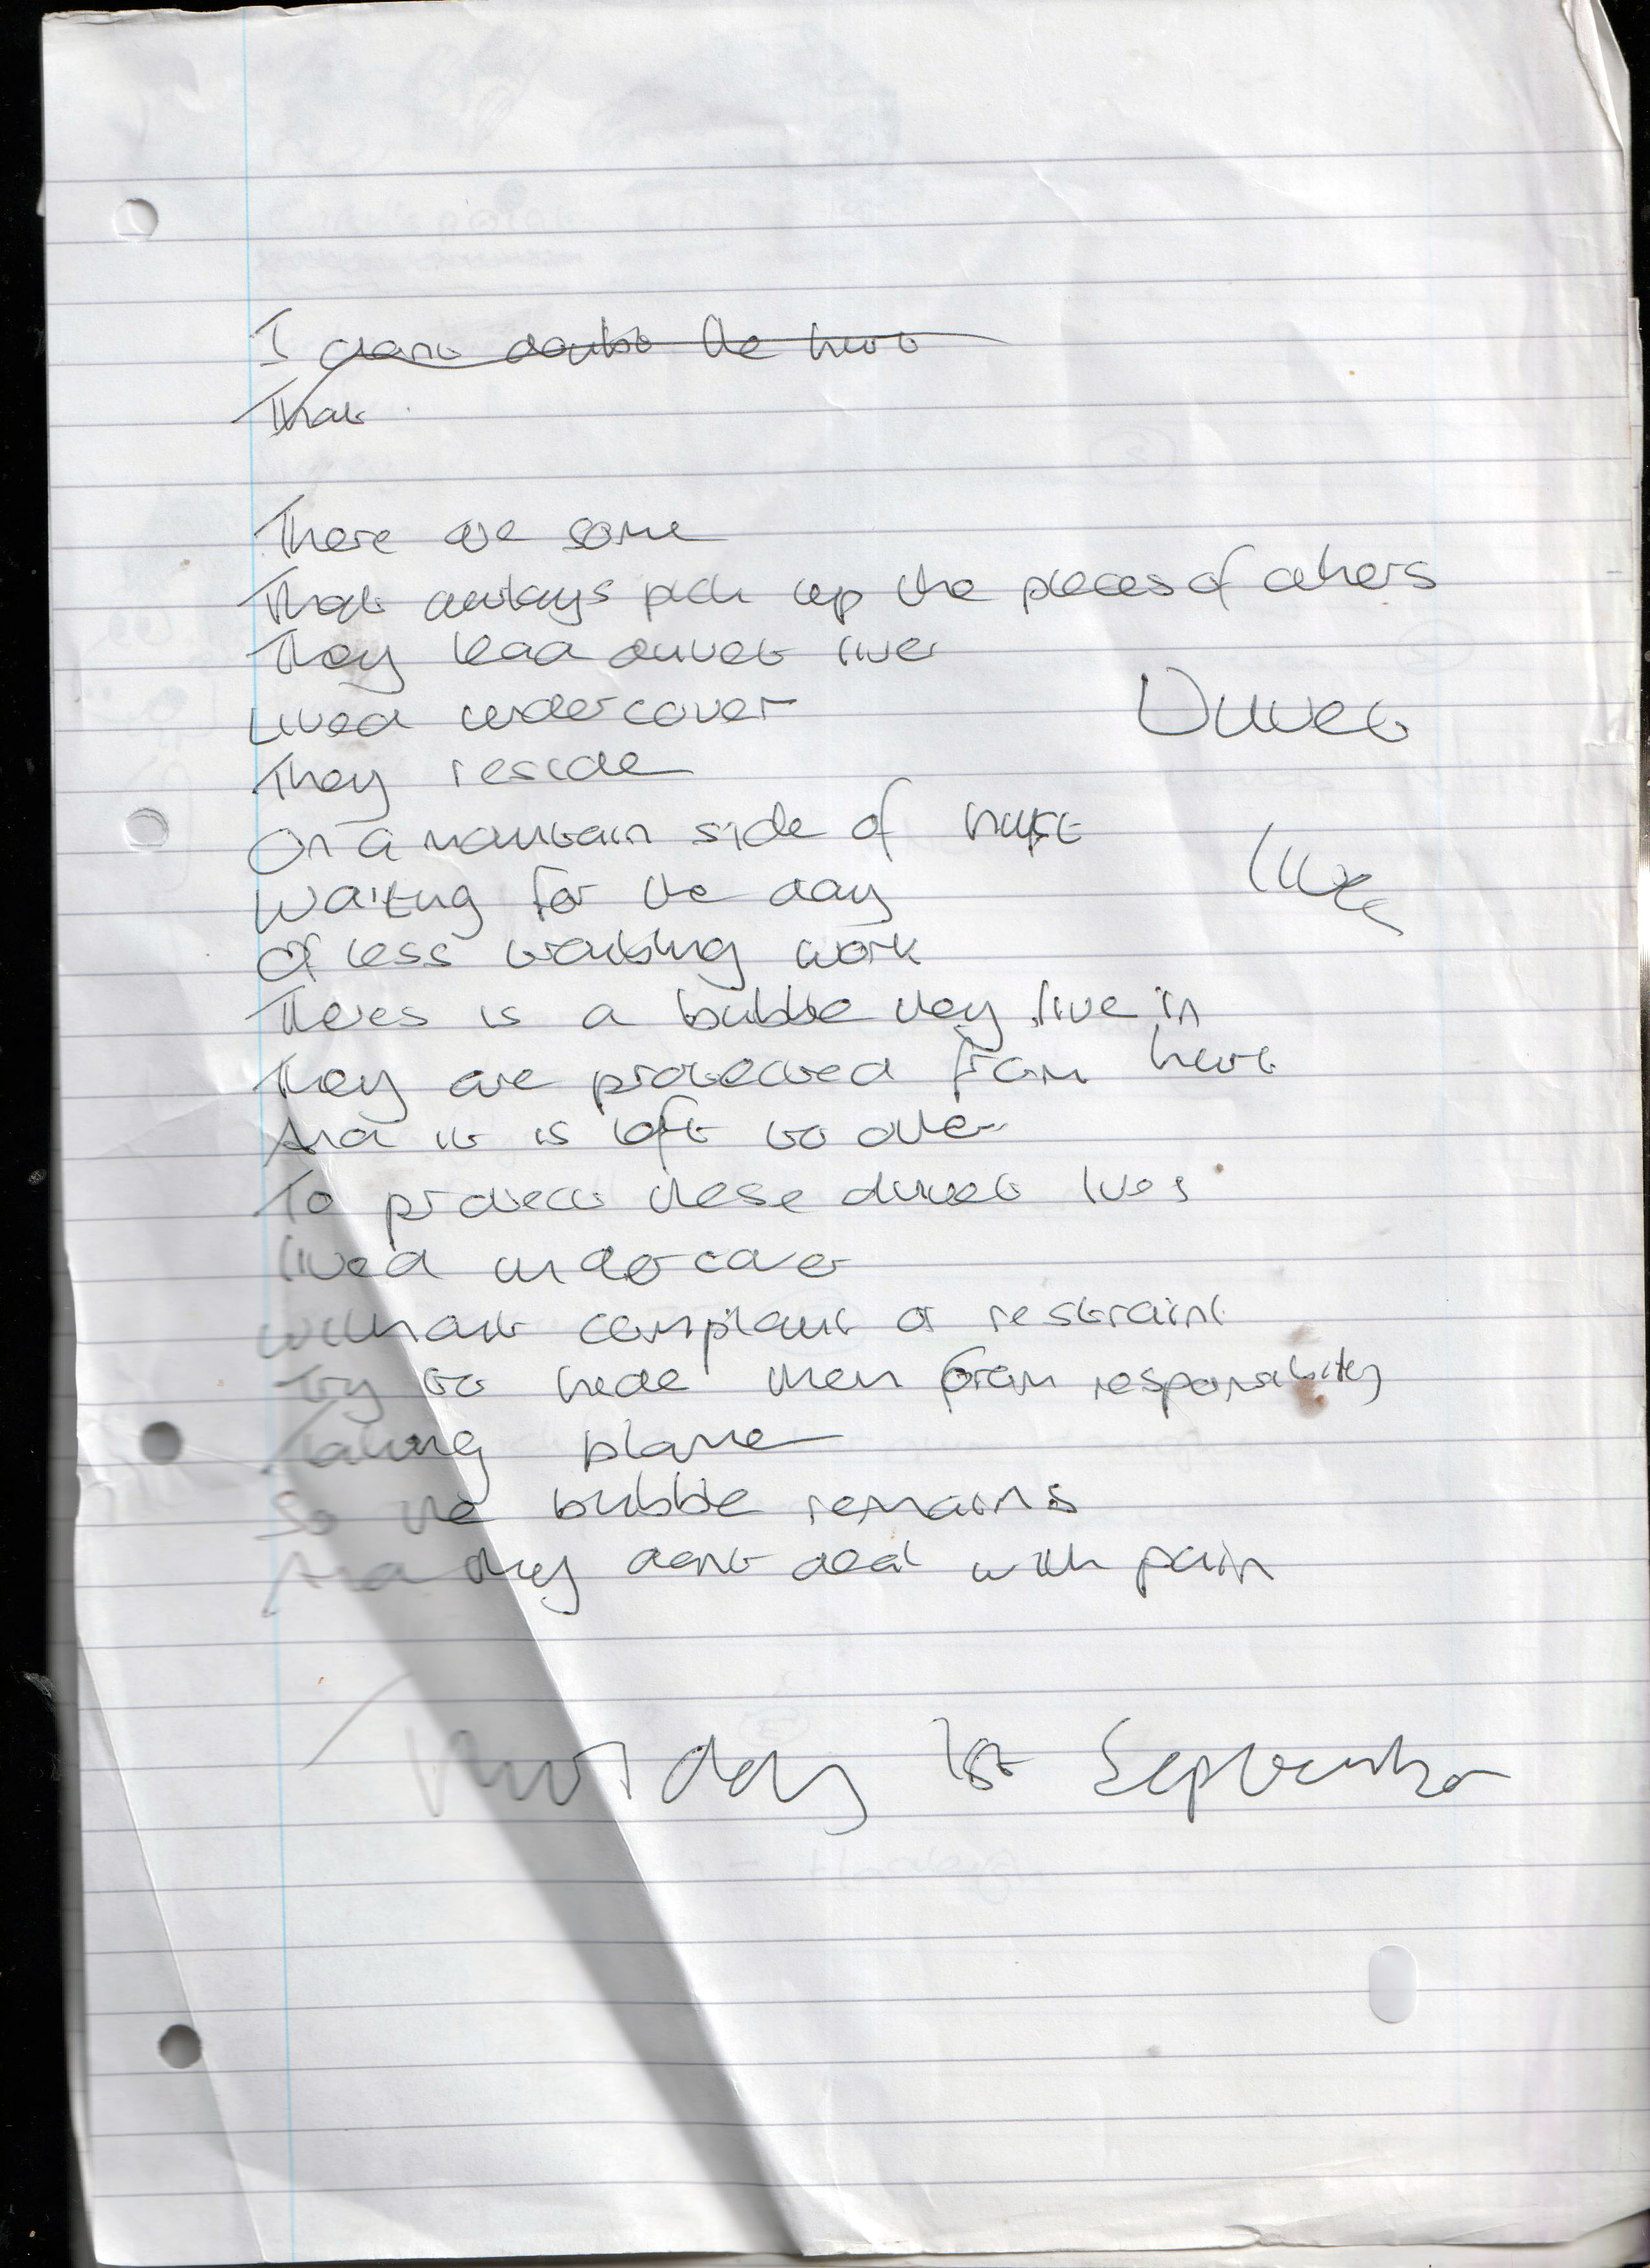 I dont doubt the hurt
That
There are some
That always pick up the pieces of others
They lead duvet lives
Lived undercover
Duvet
They reside
On a mountain side of hurt
Lives
Waiting for the day
Of less working work
Theres is a bubble they live in
They are protected from hurt
And it is left to other
To protect these duvet lives
lived undercover
without complaint or restraint
Try to hide them from responsability
Taking blame
So the bubble remains
And they dont deal with pain
Thursday 1st September